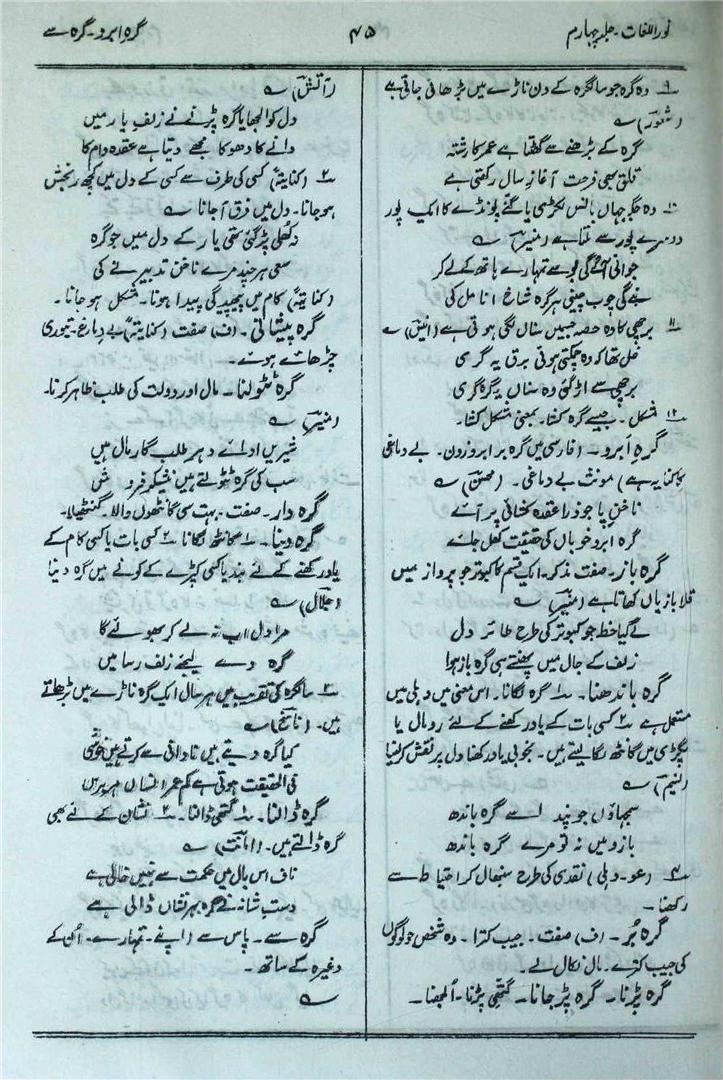 نور اللغات۔ جلد چہارم
۴۵
گرہ ابرو۔ گرہ سے
۹ وہ گرہ جو سالگرہ کے دن ناڑے میں بڑھائی جاتی ہے
(شعور) ؎
گرہ کے بڑھنے سے گھٹتا ہے عمر کا رشتہ
قلق بھی فرحت آغاز سال رکھتی ہے
۱۰ وہ جگہ جہاں بانس لکڑی یا گنے پونڈے کا ایک پور
دوسرے پور سے ملتا ہے (منیر) ؎
جوانی آئے گی بوسے تمہارے ہاتھ کے لے کر
بنے گی چوب چینی ہر گرہ شاخ انامل کی
۱۱ برچھی کا وہ حصہ جسمیں سناں لگی ہوتی ہے (انیس) ؎
غل تھا کہ وہ چمکتی ہوئی برق یہ گری
برچھی سے اڑ گئی وہ سناں یہ گرہ گری
۱۲ مشکل۔ جیسے گرہ کشا۔ بمعنی مشکل کشا۔
گرہ ابرو۔ (فارسی میں گرہ بر ابرو زدن۔ بے دماغی
کا کنایہ ہے) مونث بے دماغی۔ (محسن) ؎
ناخن پا جو ذرا عقدہ کشائی پر آئے
گرہ ابرو خوباں کی حقیقت کھل جائے
گرہ باز۔ صفت مذکر۔ ایک قسم کا کبوتر جو پرواز میں
قلابازیاں کھاتا ہے (منیر) ؎
لے گیا خط جو کبوتر کی طرح طائر دل
زلف کے جال میں پھنستے ہی گرہ باز ہوا
گرہ باندھنا۔ ۱ گرہ لگانا۔ اس معنی میں دہلی میں
مستعمل ہے ۲ کسی بات کے یاد رکھنے کے لئے رومال یا
پگڑی میں گانٹھ لگا لیتے ہیں۔ بخوبی یاد رکھنا دل پر نقش کرلینا
(نسیم) ؎
سمجھاؤں جو پند اسے گرہ باندھ
بازو میں نہ تو مرے گرہ باندھ
۳ (عو۔ دہلی) نقدی کی طرح سنبھال کر احتیاط سے
رکھنا۔
گرہ بر۔ (ف) صفت۔ جیب کترا۔ وہ شخص جو لوگوں
کی جیب کترے۔ مال نکال لے۔
گرہ پڑنا۔ گرہ پڑ جانا۔ گتھی پڑنا۔ الجھنا۔
(آتش) ؎
دل کو الجھایا گرہ پڑنے نے زلف یار میں
دانے کا دھوکا مجھے دیتا ہے عقدہ دام کا
۲ (کنایتہً) کسی کی طرف سے کسی کے دل میں کچھ رنجش
ہو جانا۔ دل میں فرق آجانا ؎
نہ کھلی پڑ گئی تھی یار کے دل میں جو گرہ
سعی ہر چند مرے ناخن تدبیر نے کی
(کنایتہً) کام میں پیچیدگی پیدا ہونا۔ مشکل ہو جانا۔
گرہ پیشانی۔ (ف) صفت (کنایتہً) بے دماغ۔ تیوری
چڑھائے ہوئے۔
گرہ ٹٹولنا۔ مال اور دولت کی طلب ظاہر کرنا۔
(منیر) ؎
شیریں ادائے دہر طلب گار مال ہیں
سب کی گرہ ٹٹولتے ہیں نیشکر فروش
گرہ دار۔ صفت۔ بہت سی گانٹھوں والا۔ گنٹھیلا۔
گرہ دینا۔ ۱ گانٹھ لگانا ۲ کسی بات یا کسی کام کے
یاد رکھنے کے لئے بند یا کسی کپڑے کے کونے میں گرہ دینا
(جلال) ؎
مرا دل اب نہ لے کر بھولئے گا
گرہ دے لیجئے زلف رسا میں
۳ سالگرہ کی تقریب میں ہر سال ایک گرہ ناڑے میں بڑھاتے
ہیں۔ (ناسخ) ؎
کیا گرہ دیتے ہیں نادانی سے کرتے ہیں خوشی
فی الحقیقت ہوتی ہے کم عمر انساں ہر برس
گرہ ڈالنا۔ ۱ گتھی ڈالنا۔ ۲ نشان کے لئے بھی
گرہ ڈالتے ہیں۔ (امانت) ؎
ناف اس بال میں حکمت سے نہیں خالی ہے
دست شانہ نے گرہ بہر نشاں ڈالی ہے
گرہ سے۔ پاس سے (اپنے۔ تمہارے۔ اُن کے
وغیرہ کے ساتھ۔
؎